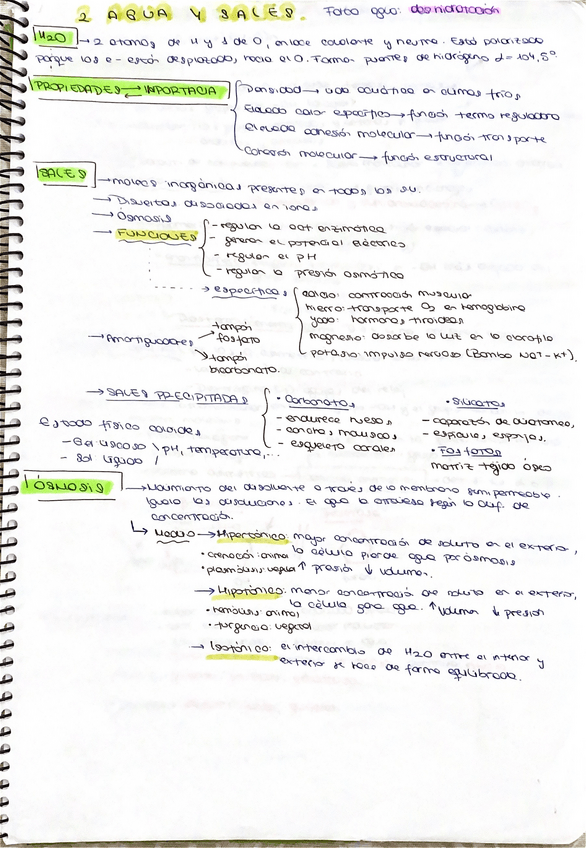 2 AGUA Y SALES. Falta agua: deshidratación
H2O → 2 átomos de H y 1 de O, enlace covalente y neutra. Está polarizada
porque los e- están desplazados hacia el O. Forman puentes de hidrógeno d = 104,5º
PROPIEDADES ⇄ IMPORTACIA
Densidad → vida acuática en climas fríos
Elevado calor específico → función termo reguladora
Elevada cohesión molecular → función transporte
Cohesión molecular → función estructural
SALES
→ molecs inorgánicas presentes en todos los s.v.
→ Disueltas disociadas en iones
→ Osmosis
→ FUNCIONES
- regular la act enzimática
- generar el potencial eléctrico
- regular el pH
- regular la presión osmótica
→ específicas
calcio: contracción muscular
hierro: transporte O2 en hemoglobina
yodo: hormonas tiroideas
magnesio: absorbe la luz en la clorofila
potasio: impulso nervioso (Bomba Na+-K+).
→ Amortiguadores
tampón fosfato
tampón bicarbonato.
→ SALES PRECIPITADAS
• Carbonatos
- endurece huesos
- conchas moluscos
- esqueleto corales
• Silicatos
- caparazón de diatomeas,
- espículas esponjas,
• Fosfatos
matriz tejido óseo
Estado físico coloides
- Gel viscoso
- Sol líquido
pH, temperatura,...
ÓSMOSIS
→ Movimiento del disolvente a través de la membrana semipermeable.
Iguala las disoluciones. El agua la atraviesa según la dif. de
concentración.
↳ Medios → Hipertónico: mayor concentración de soluto en el exterior,
la célula pierde agua por ósmosis
• crenación: animal
• plasmólisis: vegetal ↑ presión ↓ volumen.
→ Hipotónico: menor concentración de soluto en el exterior,
la célula gana agua. ↑ volumen ↓ presión
• hemólisis: animal
• turgencia: vegetal
→ Isotónico: el intercambio de H2O entre el interior y
exterior se hace de forma equilibrada.